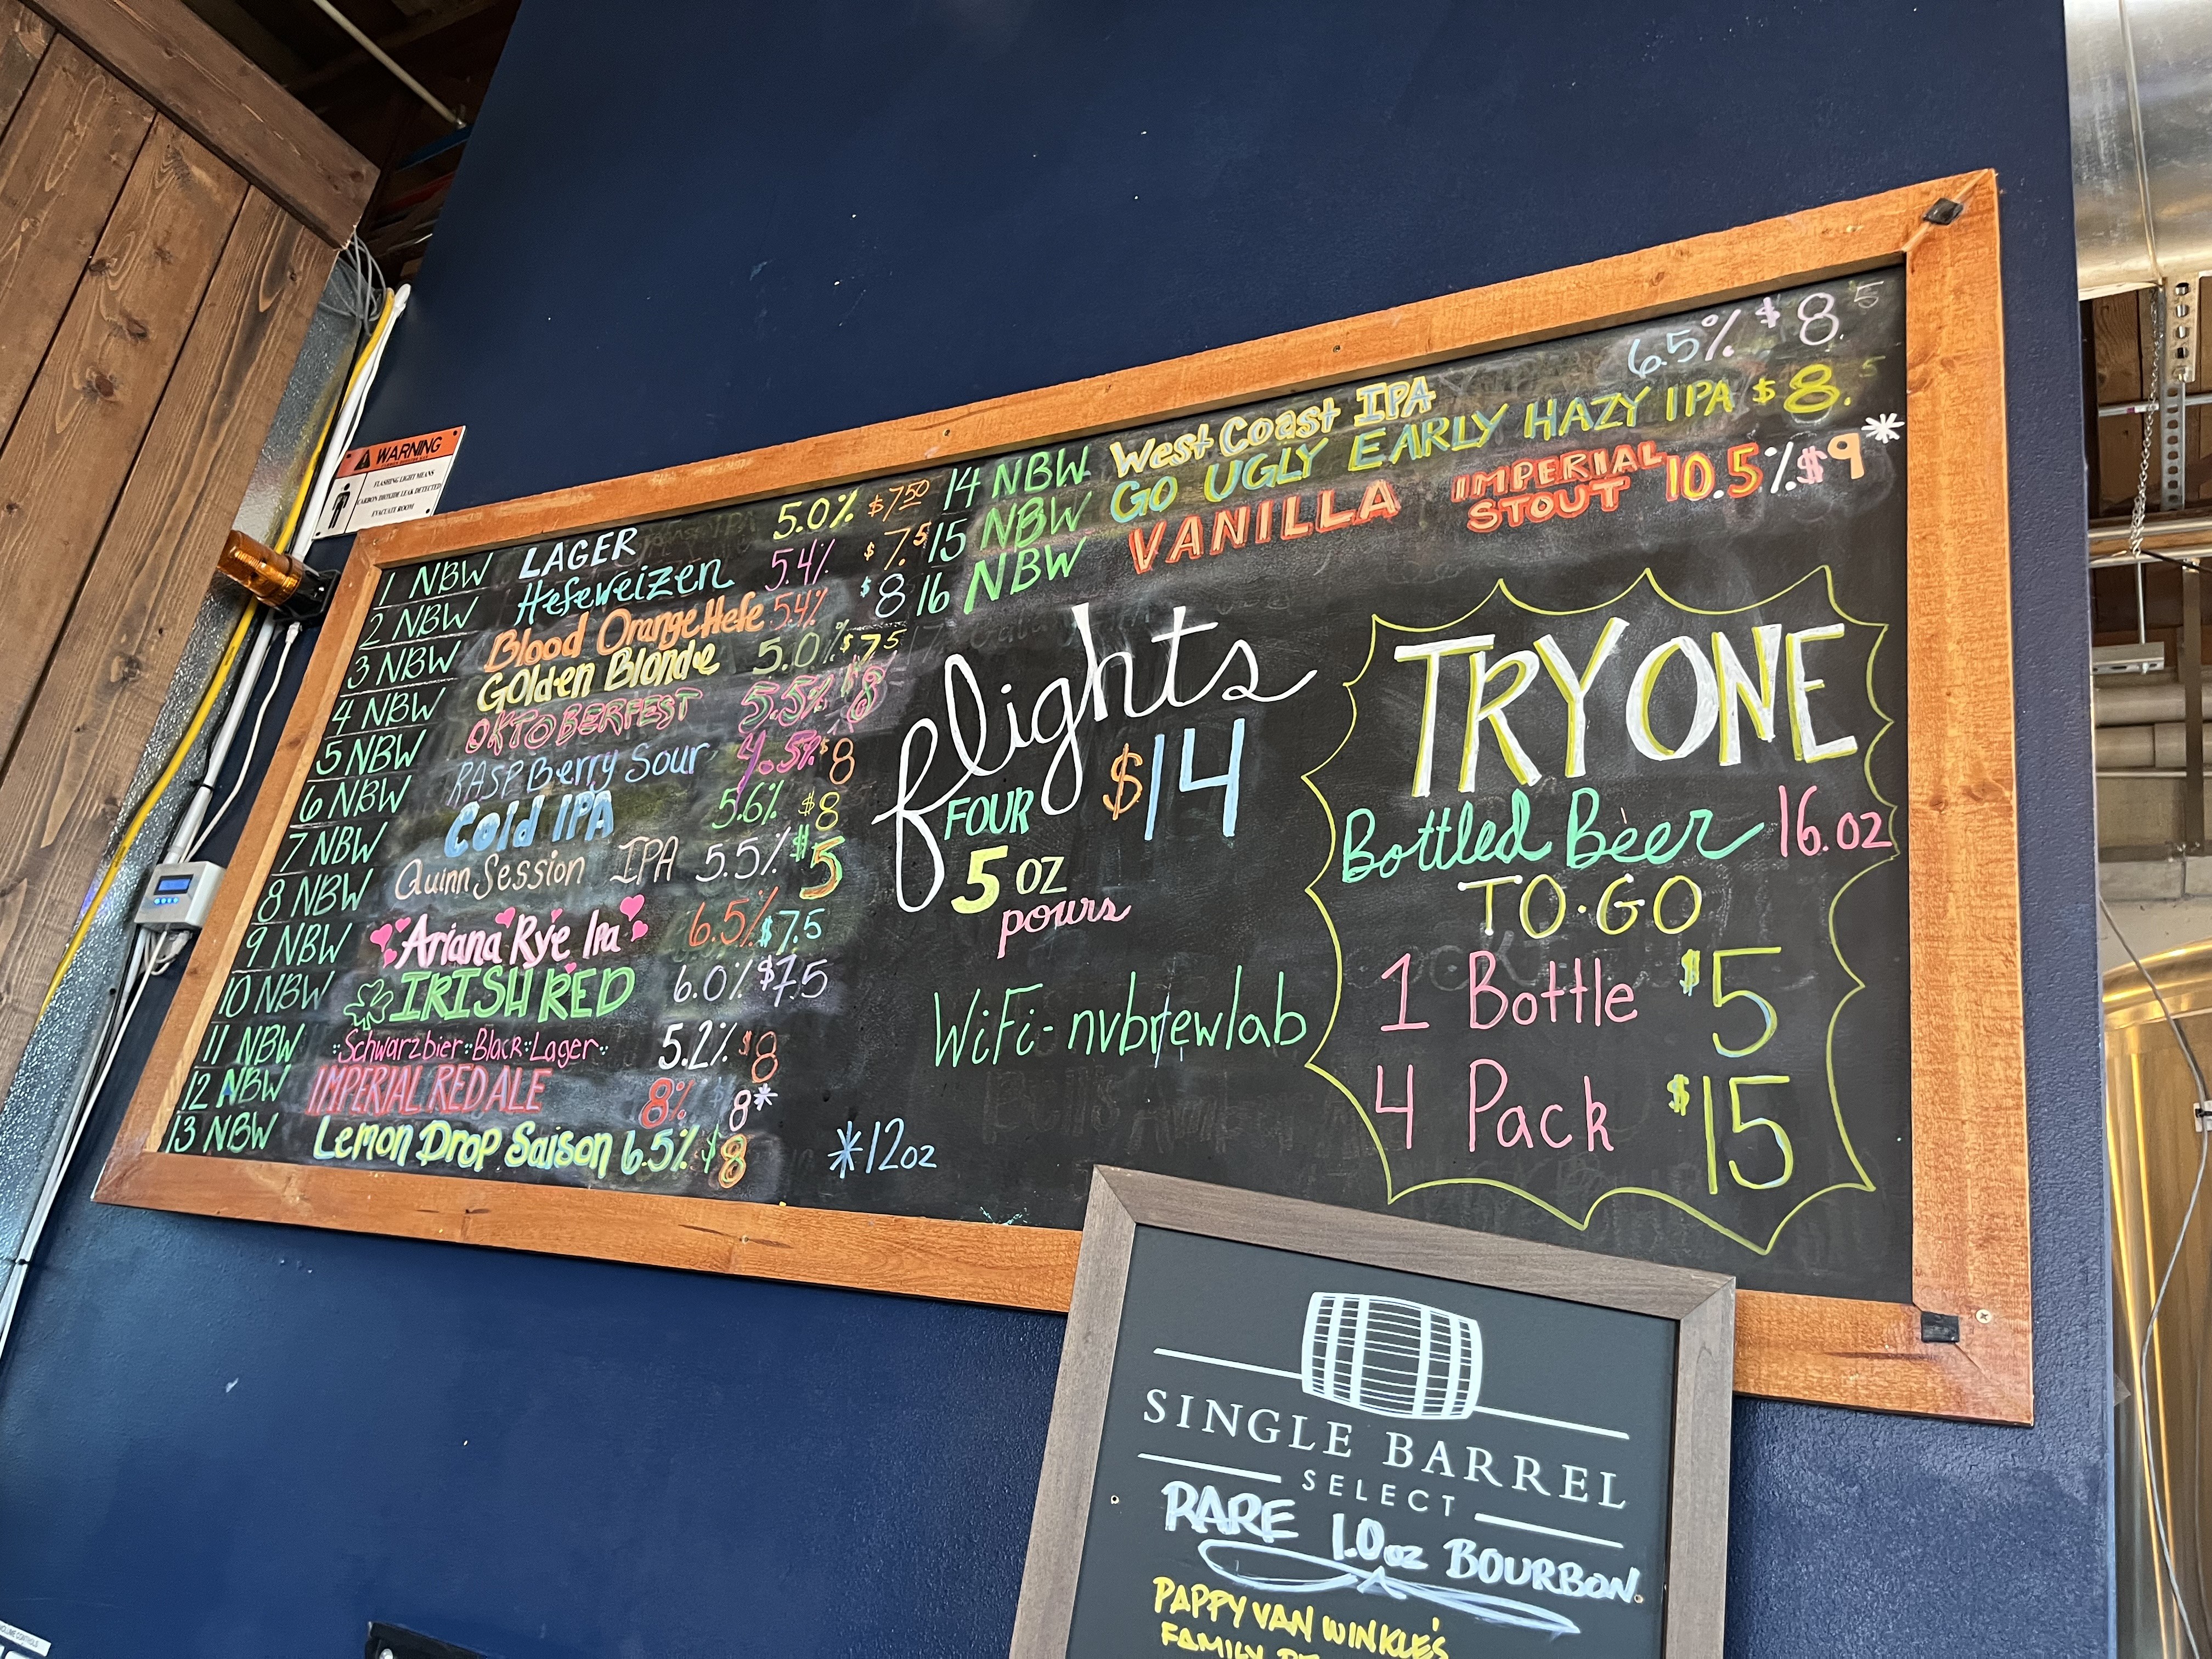 WARNING
FLASHING LIGHT MEANS
CARBON DIOXIDE LEAK DETECTED
EVACUATE ROOM
1 NBW LAGER 5.0% $7.50
2 NBW Hefeweizen 5.4% $7.5
3 NBW Blood Orange Hefe 5.4% $8
4 NBW Golden Blonde 5.0% $7.5
5 NBW OKTOBERFEST 5.5% $8
6 NBW RASPBerry Sour 4.5% $8
7 NBW Cold IPA 5.6% $8
8 NBW Quinn Session IPA 5.5% $5
9 NBW Ariana Rye Ipa 6.5% $7.5
10 NBW IRISH RED 6.0% $7.5
11 NBW Schwarzbier Black Lager 5.2% $8
12 NBW IMPERIAL RED ALE 8% $8*
13 NBW Lemon Drop Saison 6.5% $8
*12oz
14 NBW West Coast IPA 6.5% $8.5
15 NBW GO UGLY EARLY HAZY IPA $8.5
16 NBW VANILLA IMPERIAL STOUT 10.5% $9*
flights
FOUR $14
5 oz
pours
WiFi-nvbrewlab
TRY ONE
Bottled Beer 16.oz
TO·GO
1 Bottle $5
4 Pack $15
SINGLE BARREL
SELECT
RARE 1.0oz BOURBON.
PAPPY VAN WINKLE'S
FAMILY